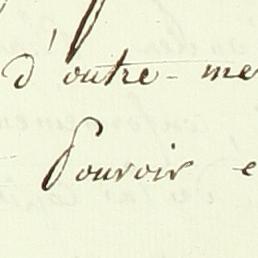 d'outre-me
Pouvoir e